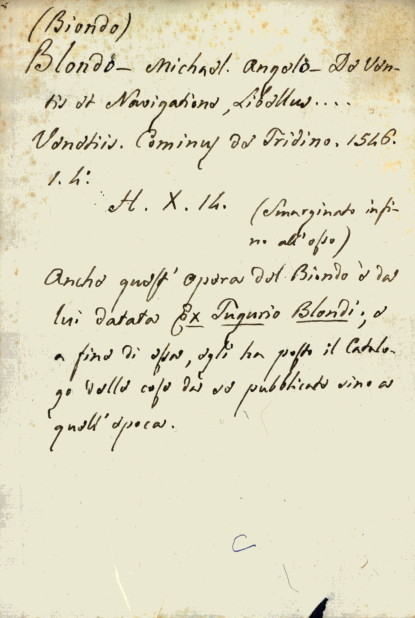 (Biondo)
Blondo - Michael. Angelo - De Ven-
tis et Navigatione, Libellus....
Venetiis. Cominus de Tridino. 1546.
1. 4.º
H. X. 14.
(Smarginato infi-
no all'osso)
Anche quest' opera del Biondo è da
lui datata Ex Tugurio Blondi; e
a fine di essa, egli ha posto il Catalo-
go delle cose da se pubblicate sino a
quell' epoca.
C